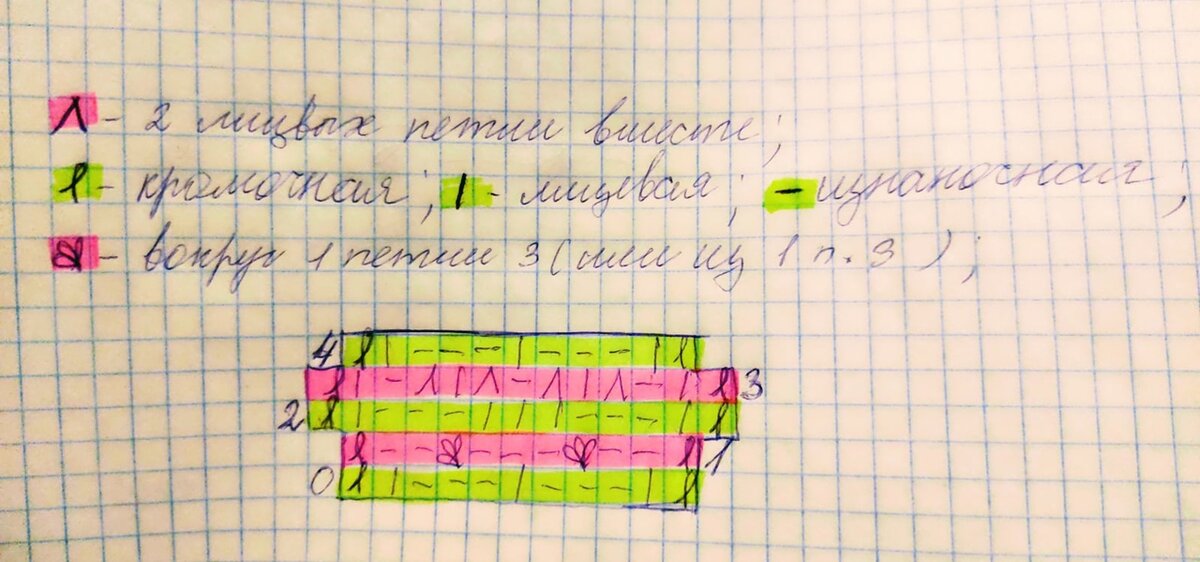 Λ - 2 лицвых петли вместе;
ℓ - кромочная; | - лицевая; - изнаночная;
- вокруг 1 петли 3 (или из 1 п. 3);
4
3
2
1
0